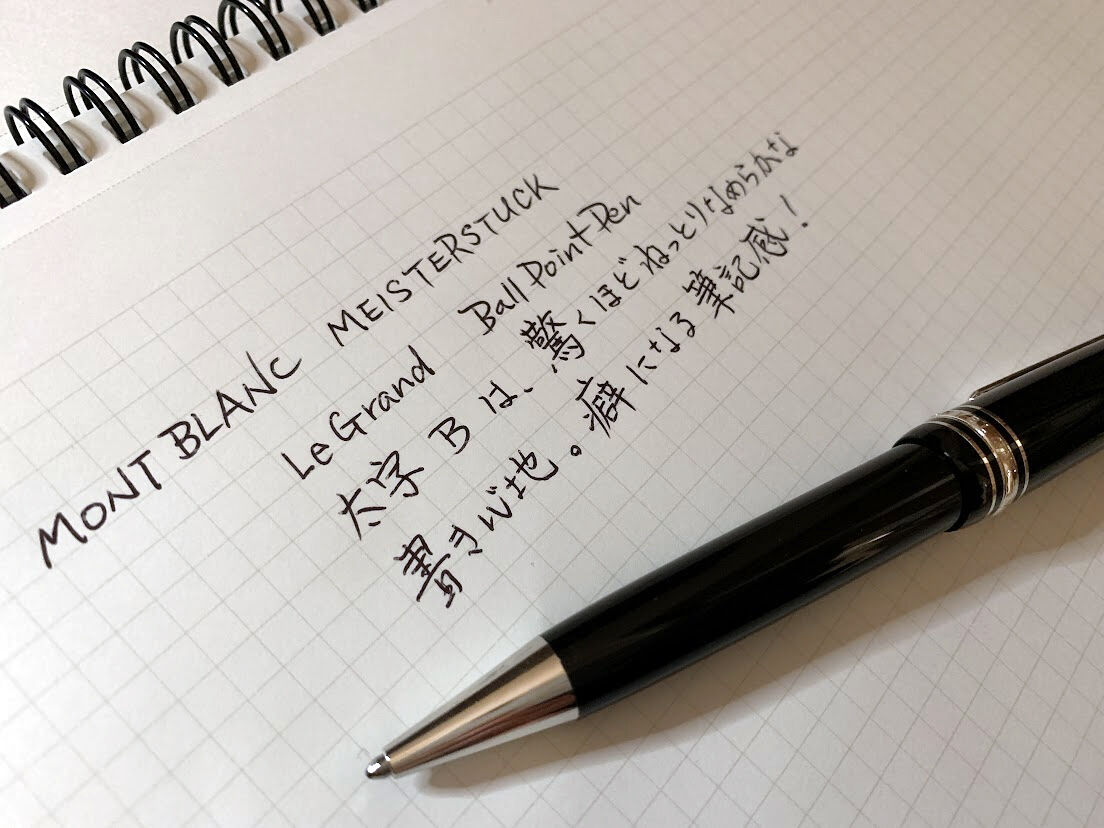 MONTBLANC MEISTERSTUCK
LeGrand BallPointPen
太字 B は、驚くほどねっとりなめらかな
書き心地。癖になる筆記感！